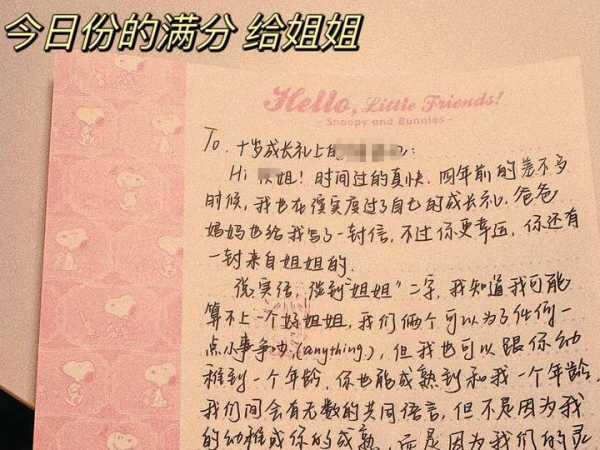 今日份的满分 给姐姐
Hello, Little Friends!
- Snoopy and Bunnies -
To. 十岁成长礼上的
Hi 姐！时间过的真快，四年前的差不多
时候，我也在 实度过了自己的成长礼，爸爸
妈妈也给我写了一封信，不过你更幸运，你还有
一封来自姐姐的.
说实话，谈到“姐姐”二字，我知道我可能
算不上一个好姐姐，我们俩个可以为了任何一
点小事争吵(anything.)，但我也可以跟你幼
稚到一个年龄，你也能成熟到和我一个年龄，
我们间会有无数的共同语言，但不是因为我
的幼稚或你的成熟，而是因为我们的灵